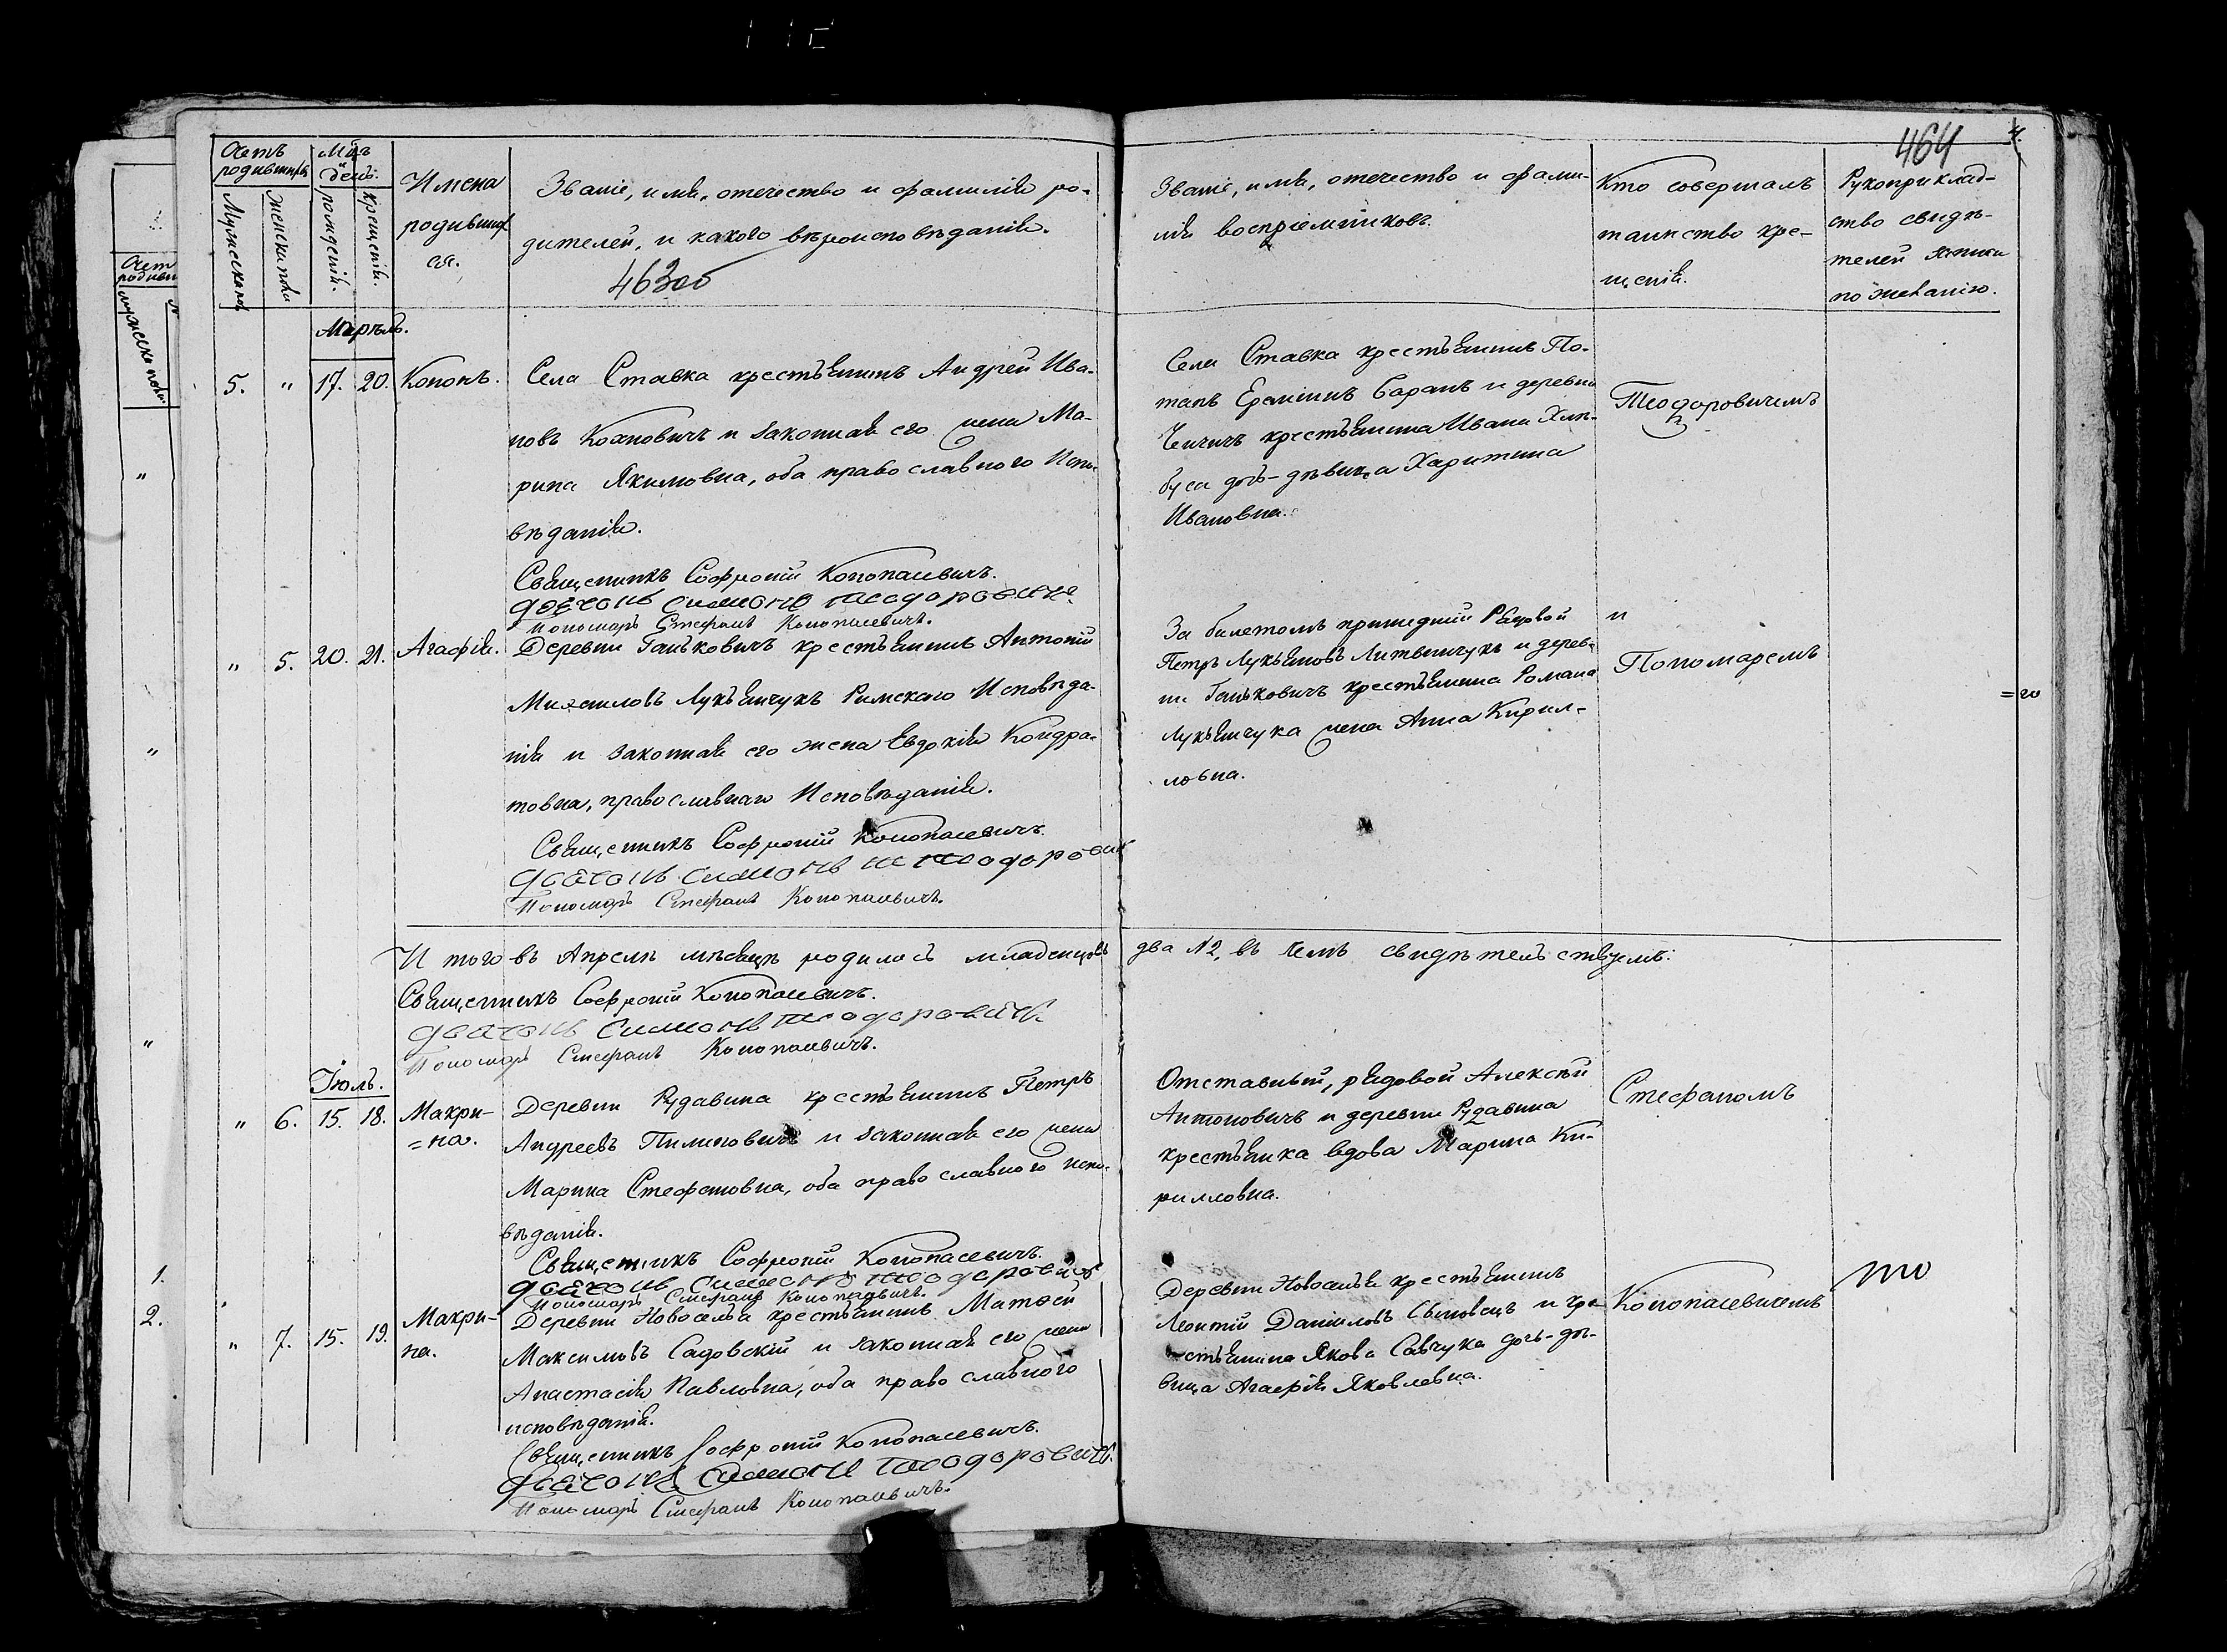 464
4.
Счетъ родившихся
Мужеска полъ
Женска полъ
Мѣцъ и день:
рожденія.
крещенія.
Имена
родившихся.
Званіе, имя, отечество и фамилія ро-
дителей, и какого вѣроисповѣданія.
463об
Званіе, имя, отечество и фами-
лія воспріемниковъ.
Кто совершалъ
таинство кре-
щенія.
Рукоприклад-
ство свидѣ-
телей записи
по желанію.
Апрѣль.
5. " 17. 20. Кононъ.
Села Ставка крестьянинъ Андрей Ива-
новъ Кохновичъ и законная его жена Ма-
рина Якимовна, оба православного Испо-
вѣданія.
Священникъ Софроній Конопасевичъ.
дьячокъ Симонъ Теодоровичъ
Пономарь Стефанъ Конопасевичъ.
Села Ставка крестьянинъ По-
тапъ Ереміинъ Баранъ и деревни
Ченчичъ крестьянина Ивана Хлѣ-
буса дочь-дѣвица Харитина
Ивановна.
Теодоровичемъ
" 5. 20. 21. Агафія.
Деревни Ганьковичъ крестьянинъ Антоній
Михаиловъ Лукьянчукъ Римского Исповѣда-
нія и законная его жена Евдокія Кондра-
товна, православнаго Исповѣданія.
Священникъ Софроній Конопасевичъ.
дьячокъ Симонъ Теодоровичъ
Пономарь Стефанъ Конопасевичъ.
За билетомъ пришедшій Рядовой
Петръ Лукьяновъ Литвинчукъ и дерев-
ни Ганьковичъ крестьянина Романа
Лукьянчука жена Анна Кирил-
ловна.
и
Пономаремъ
=го
И того въ Апрелѣ мѣсяцѣ родилось младенцовъ два №2, въ чемъ свидѣтельствуемъ:
Священникъ Софроній Конопасевичъ.
дьячокъ Симонъ Теодоровичъ.
Пономарь Стефанъ Конопасевичъ.
Іюль.
" 6. 15. 18. Макри-
=на.
Деревни Рудавина крестьянинъ Петръ
Андреевъ Пилиповичъ и законная его жена
Марина Стефановна, оба православного испо-
вѣданія.
Священникъ Софроній Конопасевичъ.
дьячокъ Симонъ Теодоровичъ
Пономарь Стефанъ Конопасевичъ.
Отставный, рядовой Алексѣй
Антоновичъ и деревни Рудавина
крестьянка вдова Марина Ки-
рилловна.
Стефаномъ
" 7. 15. 19. Макри-
на.
Деревни Новоселья крестьянинъ Матѳей
Максимовъ Садовскій и законная его жена
Анастасія Павловна, оба православного
исповѣданія.
Священникъ Софроній Конопасевичъ.
дьячокъ Симонъ Теодоровичъ.
Пономарь Стефанъ Конопасевичъ.
Деревни Новоселья крестьянинъ
Леонтій Даніиловъ Сыновецъ и кре-
стьянина Якова Савчука дочь-дѣ-
вица Агафія Яковлевна.
Конопасевичемъ
то
1.
2.